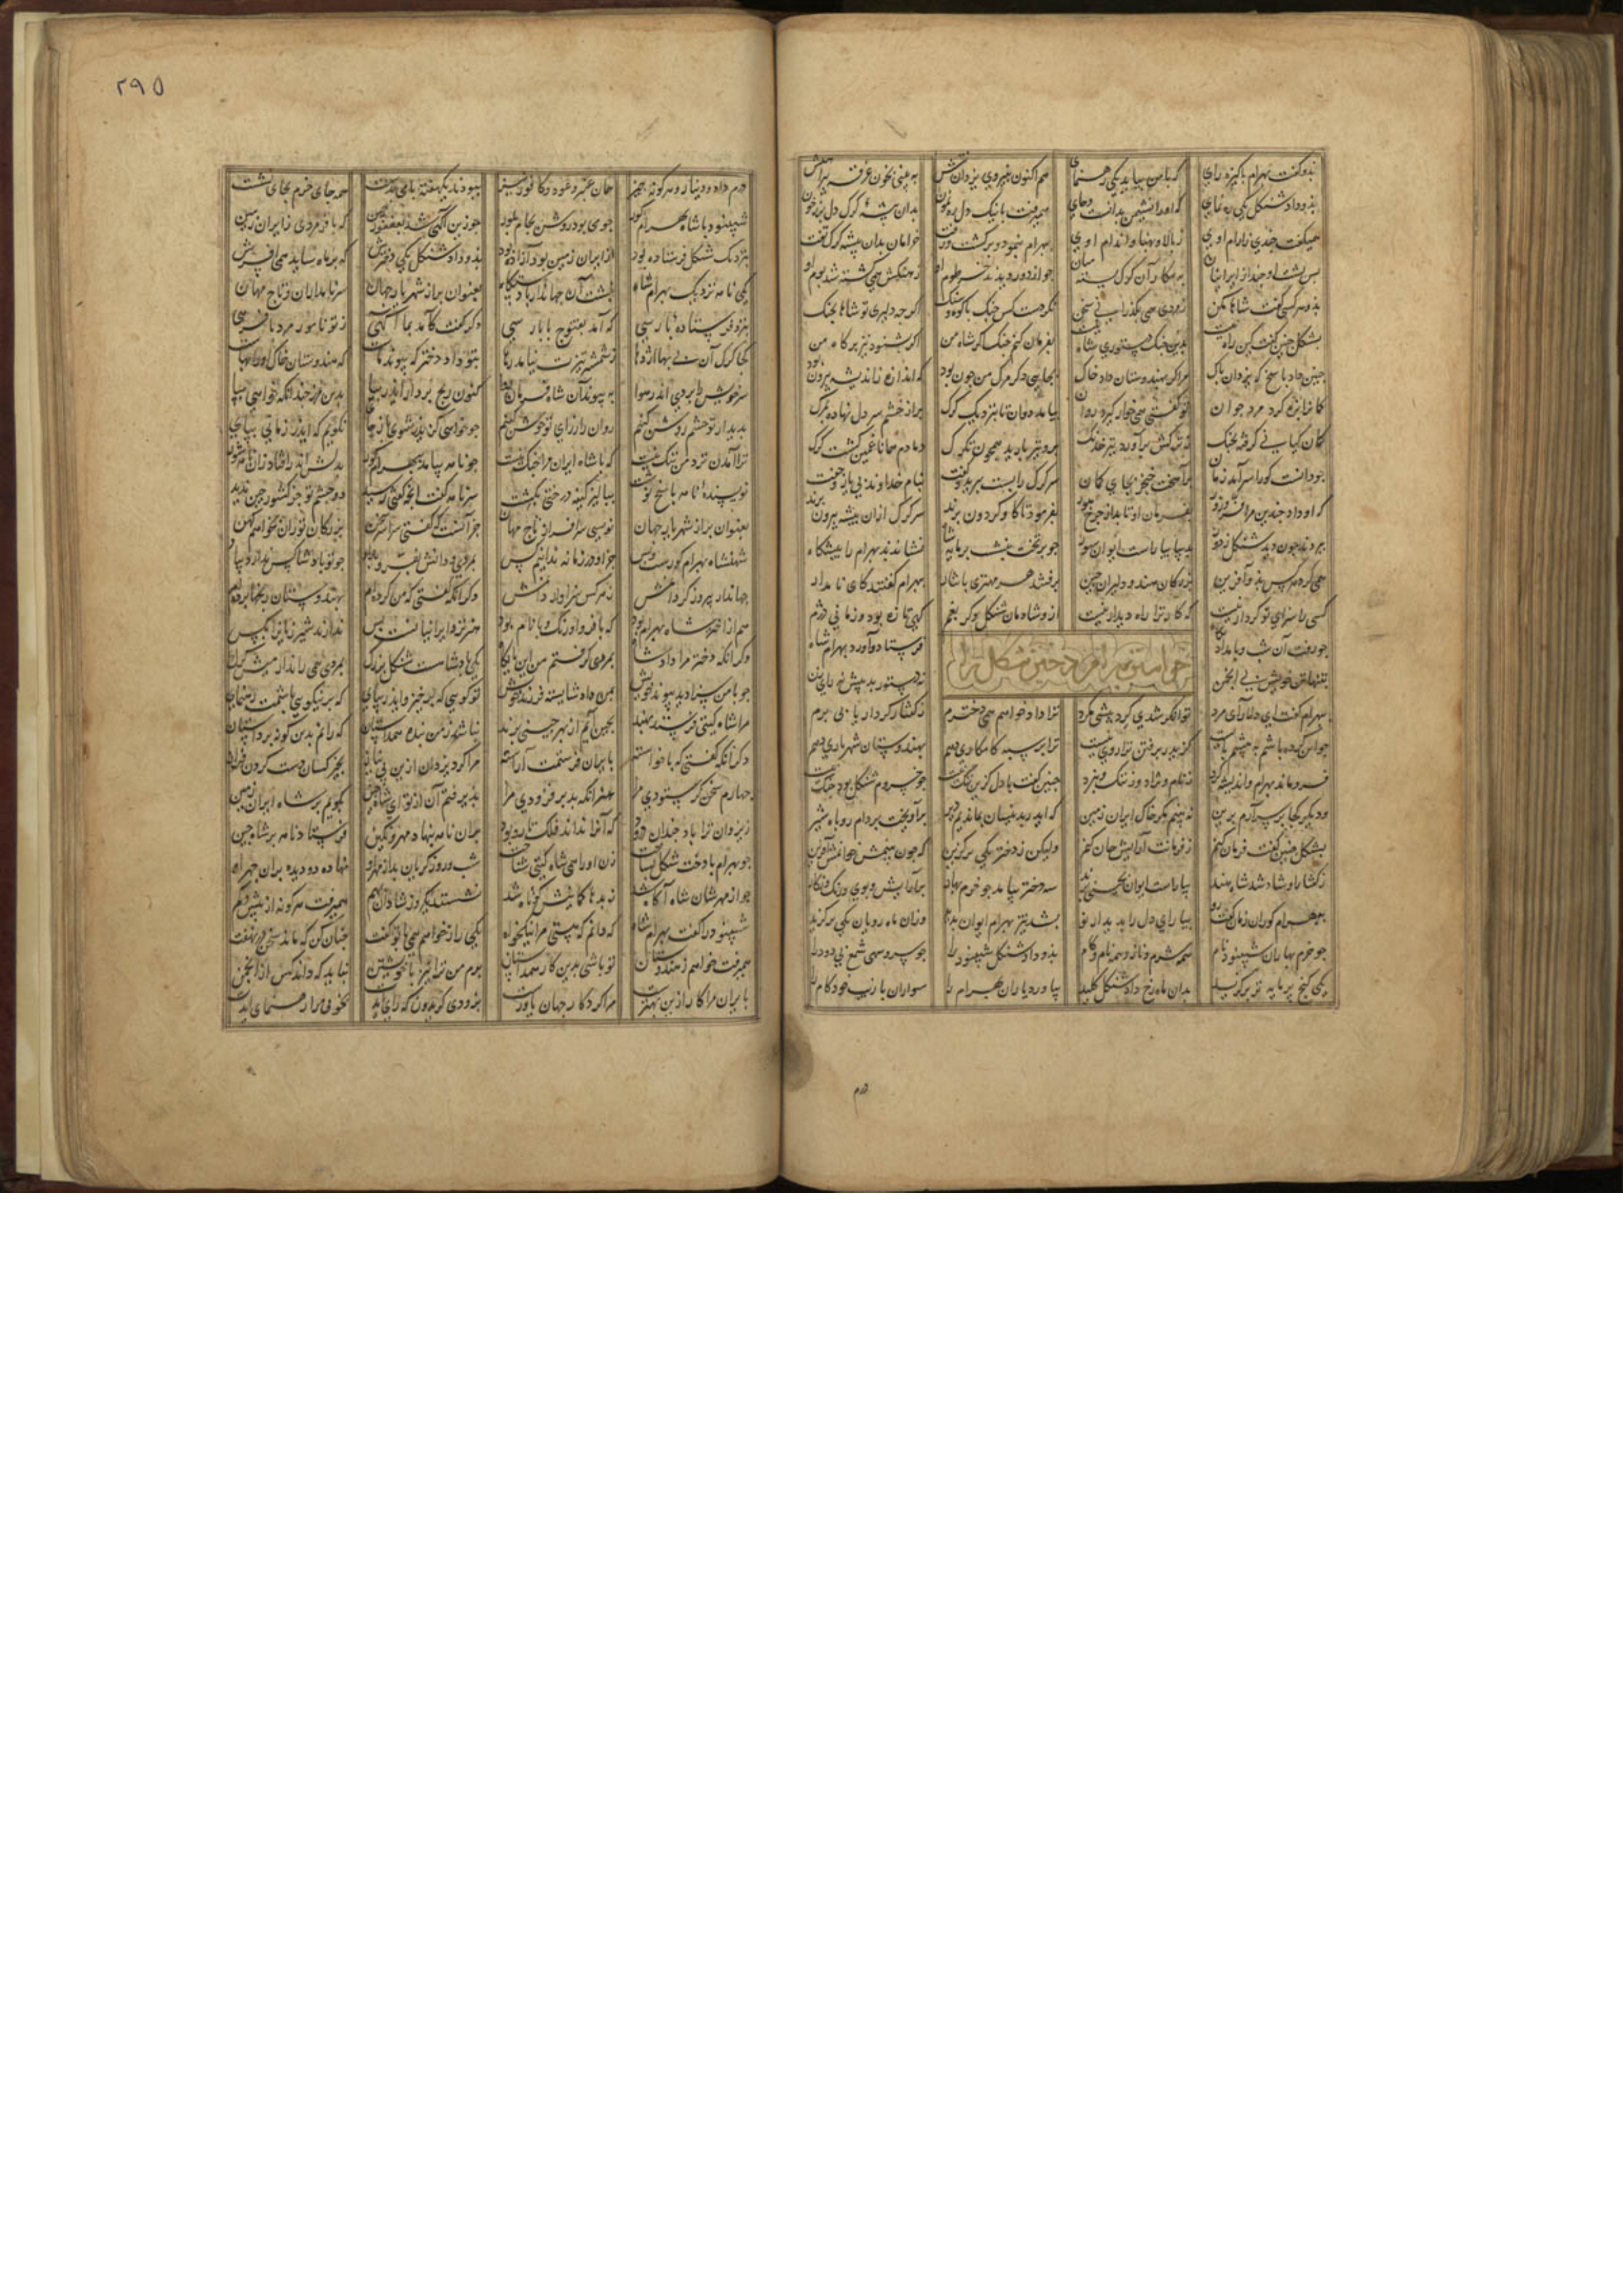 بذو کفت بهرام باکیزه رای که با من بیاید یکی رهنمای هم اکنون بنیروی یزدانش به بینی بخون غرقه پیراهنش
بذو داد شنکل یکی ره نمای که او را نشیمن بدانست و جای همیرفت با نیک دل رهنمون بدان بیشهٔ کرک دل بر ز خون
همیکفت جندی ز ارام اوی ز بالا و بهنا و اندام اوی ببهرام بنمود و برکشت و رفت خرامان بدان بیشه کرک تفت
بس بشت او جند از ایرانیان به بیکار آن کرک بسته میان جو از دور دیدند خرطوم او ز جنکش همی کشته شد بوم او
بذو هر کسی کفت شاها مکن ز مردی همی بکذرد این سخن نکردست کس جنک با کوه و سنک اکر جه دلیری تو شاها بجنک
بشنکل جنین کفت کین راه نیست بدین جنک دستوری شاه نیست بفرمان کنم جنک کر شاه من اکر بشنود نیز بر کاه من
جنین داد پاسخ که یزدان پاک مرا کر بهندوستان داد خاک بجایی دکر مرک من جون بود که اندازه ز اندیشه بیرون بود
کمانرا بزه کرد مرد جوان تو کفتی همی خوار کیرد روان بیامد دوان تا بنزدیک کرک بر از خشم سر دل نهاده بمرک
کمان کیانی کرفته بجنک ز ترکش برآورد تیر خدنک برو تیر بارید همجون تکرک دمادم همانا غمین کشت کرک
جو دانست کو را سرآمد زمان برآهخت خنجر بجای کمان سر کرک را بست ببرید و کفت بنام خداوند بی یار و جفت
که او داد جندین مرا فر و زور بفرمان او تابد از جرخ هور بفرمود تا کاو و کردون برند سر کرک ازان بیشه بیرون برند
ببردند جون دید شنکل ز دور بدیبا بیاراست ایوان سور جو بر تخت بنشست برمایه شاه نشاندند بهرام را پیشکاه
همی کرد هر کس بذو آفرین بزرکان هند و دلیران جین برفتند هر مهتری با نثار ببهرام کفتند کای نامدار
کسی را سزای تو کردار نیست که کار ترا راه دیدار نیست ازو شادمان شنکل و کر بغم کهی تازه بود و زمانی دژم
جو رفت آن شب و بامداد بکاه فرستاد و آورد بهرام شاه
خواستن بهرام دختر شنکل را
بتنها تن خویش بی انجمن نه دستور بد پیش نه رای زن
ببهرام کفت ای دلارای مرد توانکر شدی کرد بیشی مکرد ترا داد خواهم همی دخترم ز کفتار کردار یابی برم
جو این کرده باشم به پیشم بایست کزیدر برفتن ترا روی نیست ترا بر سپه کامکاری دهم بهندوستان شهریاری دهم
فروماند بهرام و اندیشه کرد ز نام و نژاد و ز ننک و نبرد جنین کفت با دل کزین ننک نیست جو خسروم شنکل بود جنک نیست
و دیکر کجا بر سر آرم برین نه بینم مکر خاک ایران زمین که ایدر بدینسان بماندیم دیر برآویخت بر دام روباه شیر
بشنکل جنین کفت فرمان کنم ز فرمانت آرایش جان کنم ولیکن ز دختر یکی برکزین که جون بینمش خوانمش آفرین
ز کفتار او شاد شد شاه هند بیاراست ایوان بجینی پرند سه دختر بیامد جو خرم بهار بآرایش و بوی و رنک و نکار
ببهرام کور آن زمان کفت رو بیارای دل را بدیدار نو بشد تیز بهرام ایوان بدید وزان ماه رویان یکی برکزید
جو خرم بهاران سپینود نام همه شرم و ناز و همه نام و کام بذو داد شنکل سپینود را جو سرو سهی شمع بی دود را
یکی کنج برمایه تر برکزید بدان ماه رخ داد شنکل کلید بیاورد یاران بهرام را سواران با زیب خودکام را
درم
۲۹۵
درم داد و دینار و هر کونه جیز همان عنبر و عود و کافور نیز ببودند یکهفته با می بدست همه جای خرم بجای نشست
سپینود با شاه بهرام کور جو می بود روشن بجام بلور جو زین آکهی شد بفغفور جین که با فر مردی ز ایران زمین
بنزدیک شنکل فرستاده بود از ایران زمین بود آزاده بود بذو داد شنکل یکی دخترش که بر ماه ساید همی افسرش
یکی نامه نزدیک بهرام شاه نبشت آن جهاندار با دستکاه بعنوان بر از شهریار جهان سر نامداران و تاج مهان
بنزد فرستادهٔ بارسی که آمد بقنوج با بار سی دکر کفت کآمد بما آکهی ز تو نامور مرد با فرهی
کجا کرک آن بی بها اژدها ز شمشیر تیزت نیامد رها بتو داد دختر که پیوند ماست که هندوستان خاک او را بهاست
سر خویش را بردی اندر هوا به پیوند آن شاه فرمان روا کنون رنج بردار ایدر بیا بدین مرز جندانکه خواهی بپا
بدیدار تو جشم روشن کنم روان را ز رای تو جوشن کنم جو خواهی کزیدر شوی باز جای نکویم که ایدر زمانی بپای
ترا آمدن نزد من ننک نیست که با شاه ایران مرا جنک نیست جو نامه بیامد ببهرام کور بدلش اندر افتاد زان نامه شور
نویسندهٔ نامه پاسخ نوشت ببالیز کینه درختی بکشت سر نامه کفت انج کفتی رسید دو جشم تو جز کشور جین ندید
بعنوان بر از شهریار جهان نویسی سرافراز و تاج مهان جز آنست که کفتی سراسر سخن بزرکان توران نخواهم کهن
شهنشاه بهرام کورست و بس جز او در زمانه ندانیم کس بمردی و دانش بفر و نژاد جو تو بادشا کس ندارد بیاد
جهاندار پیروزکر دانمش ز هر کس سزاوار دانمش دکر آنکه کفتی که من کرده ام بهندوستان رنجها برده ام
هم از اختر شاه بهرام بود که با فر و اورنک و با نام بود هنر نزد ایرانیانست و بس ندارند شیر ژیانرا بکس
وکر آنکه دختر مرا داد شاه بمردی کرفتم من این بایکاه یکی بادشاهست شنکل بزرک بمردی همی راند از میش کرک
جو با من سزا دید پیوند خویش بمن داد شایسته فرزند خویش تو کویی که برخیز و ایدر بپای که بر نیکویی باشمت رهنمای
مرا شاه کیتی فرستد بهند بجین آیم از بهر جینی پرند نباشد ز من بنده همداستان که رانم بدین کونه بر داستان
دکر آنکه کفتی که با خواسته بایران فرستمت آراسته مرا کرد یزدان ازین بی نیاز بجیز کسان دست کردن فراز
جهارم سخن کر ستودی مرا هنر آنکه بد برفزودی مرا بذیرفتم آن از تو ای شاه جین بکویم بر شاه ایران زمین
ز یزدان ترا باد جندان درود که آنرا نداند فلک تار و بود بران نامه بنهاد مهر و نکین فرستاد نامه بر شاه جین
جو بهرام با دخت شنکل بساخت زن او را همی شاه کیتی شناخت شب و روز کریان بد از مهر او نهاده دو دیده بران جهر او
جو از مهرشان شاه آکاه شد ز بدها کمانیش کوتاه شد نشستند یکروز شادان بهم همیرفت هر کونه از بیش و کم
سپینود را کفت بهرام شاه که دانم که هستی مرا نیکخواه یکی راز خواهم همی با تو کفت جنان کن که ماند سخن در نهفت
همیرفت خواهم ز هندوستان تو باشی بدین کار همداستان برم من ترا نیز با خویشتن نباید که داند کس از انجمن
بایران مرا کار ازین بهترست مرا کردکار جهان یاورست بزودی کریدون که رای آیدت بخوبی مرا رهنمای آیدت